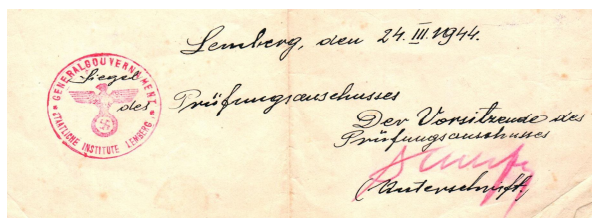 Lemberg, den 24. III. 1944.
GENERALGOUVERNEMENT
STAATLICHE INSTITUTE LEMBERG
Siegel
des Prüfungsauschusses
Der Vorsitzende des
Prüfungsauschusses
(Unterschrift)